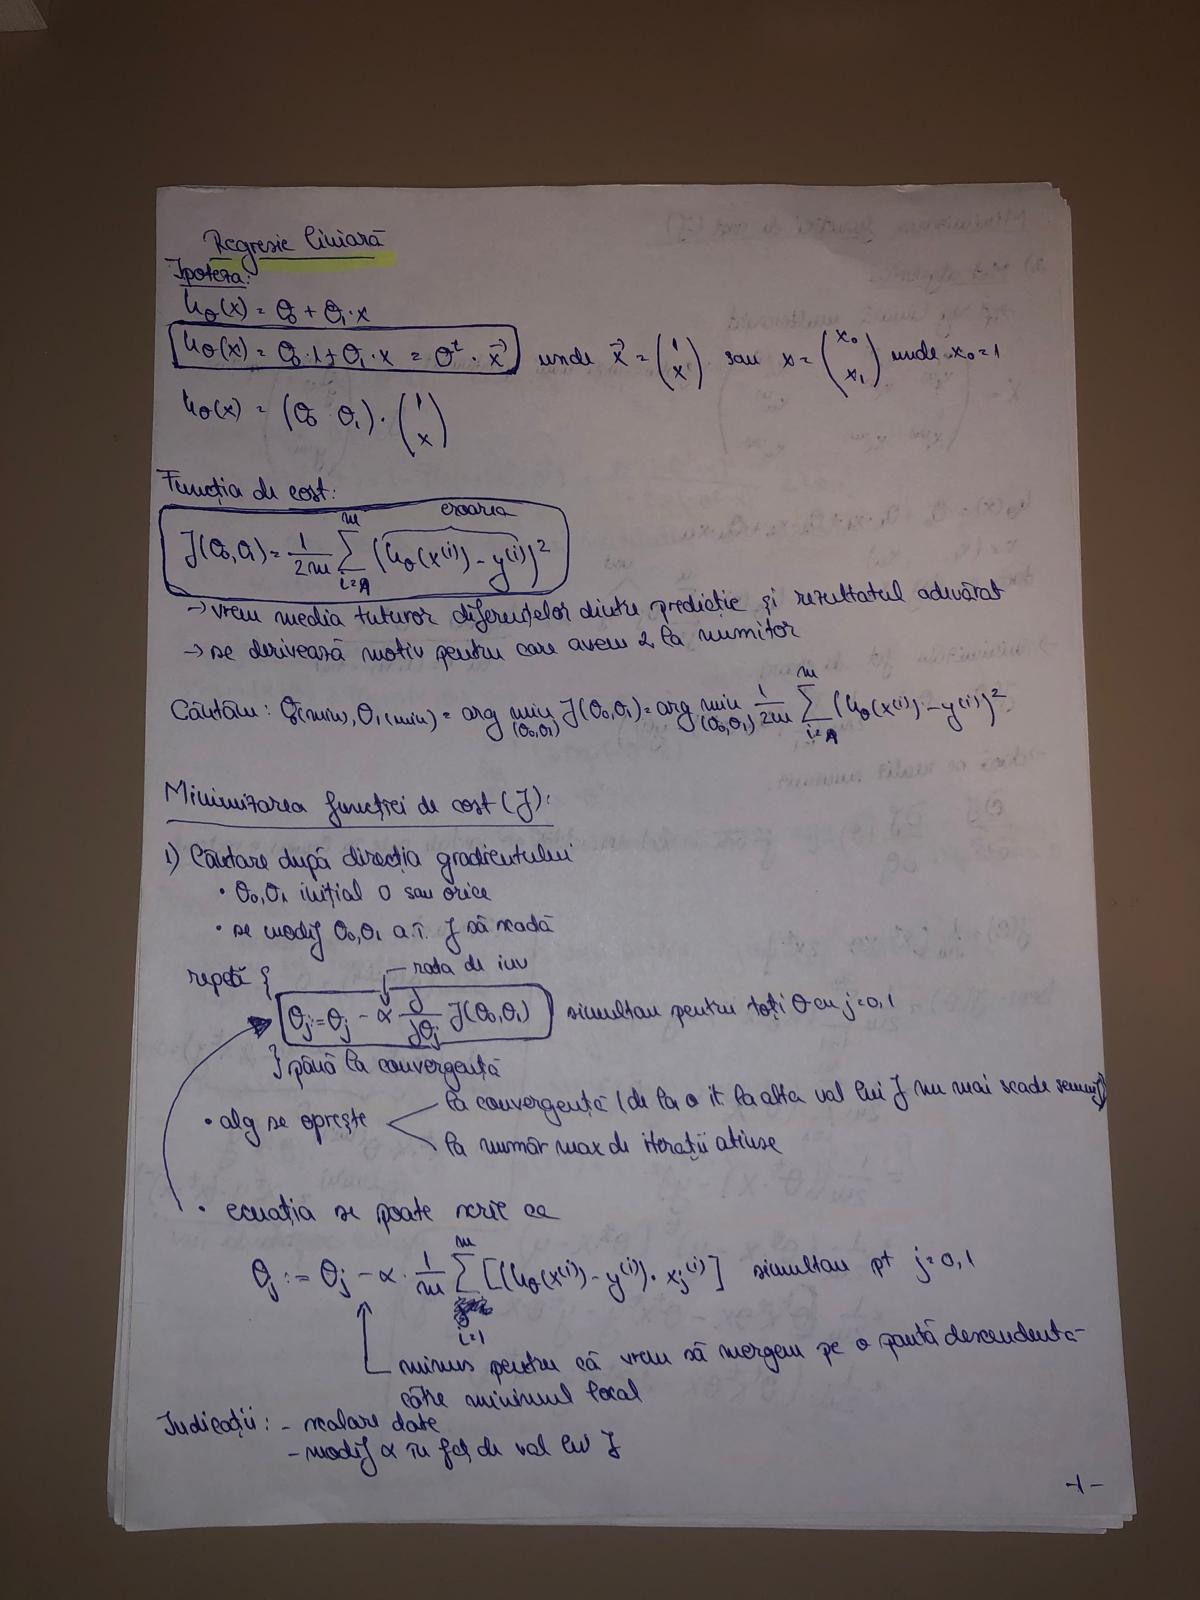 Regresie liniară
Ipoteza:
hθ(x) = θ0 + θ1·x
hθ(x) = θ0·1 + θ1·x = θᵗ·x⃗ unde x⃗ = (1 x) sau x = (x0 x1) unde x0=1
hθ(x) = (θ0 θ1)·(1 x)
Funcția de cost:
eroarea
J(θ0,θ1) = 1/2m ∑_{i=1}^{m} (hθ(x⁽ⁱ⁾) − y⁽ⁱ⁾)²
→ vrem media tuturor diferențelor dintre predicție și rezultatul adevărat
→ se derivează motiv pentru care avem 2 la numitor
Căutăm: θ0(min), θ1(min) = arg min_{(θ0,θ1)} J(θ0,θ1) = arg min_{(θ0,θ1)} 1/2m ∑_{i=1}^{m} (hθ(x⁽ⁱ⁾) − y⁽ⁱ⁾)²
Minimizarea funcției de cost (J):
1) Căutare după direcția gradientului
• θ0,θ1 inițial 0 sau orice
• se modif θ0,θ1 a.î. J să scadă
rata de inv
repetă {
θj := θj − α ∂/∂θj J(θ0,θ1) simultan pentru toți θ cu j=0,1
} până la convergență
• alg se oprește
la convergență (de la o it la alta val lui J nu mai scade semnif)
la număr max de iterații atinse
• ecuația se poate scrie ca
θj := θj − α · 1/m ∑_{i=1}^{m} [(hθ(x⁽ⁱ⁾) − y⁽ⁱ⁾)· xj⁽ⁱ⁾] simultan pt j=0,1
minus pentru că vrem să mergem pe o pantă descendentă
către minimul local
Indicații: - scalare date
- modif α în fcț de val lui J
-1-